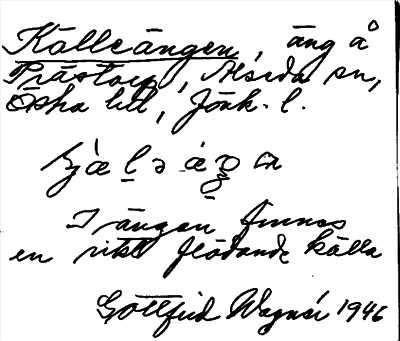 Källeängen, äng å
Prästorp, Alseda sn,
Östra hd, Jönk. l.
I ängen finnes
en rikt flödande källa
Gottfrid Wagnér 1946